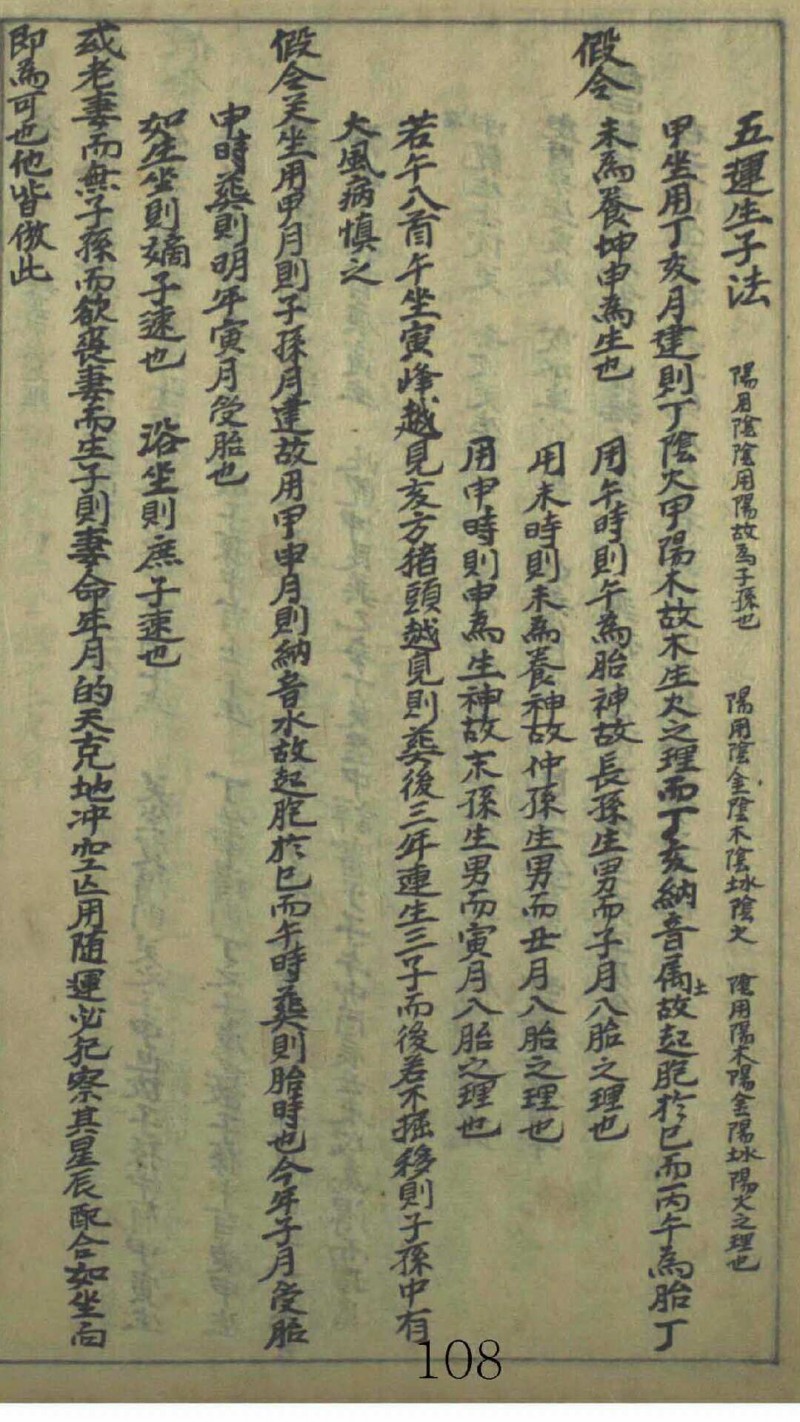 五運生子法 陽用陰陰用陽故為子孫也 陽用陰金陰木陰水陰火 陰用陽木陽金陽水陽火之理也
甲坐用丁亥月建則丁陰火甲陽木故木生火之理而丁亥納音属土故起胞於巳而丙午為胎丁
假令 未為養坤申為生也 用午時則午為胎神故長孫生男而子月入胎之理也
用未時則未為養神故仲孫生男而丑月入胎之理也
用申時則申為生神故末孫生男而寅月入胎之理也
若午入首午坐寅峰越見亥方猪頭越見則葬後三年連生三子而後若不掘移則子孫中有
大風病慎之
假令 坐用甲月則子孫月建故用甲申月則納音水故起胞於巳而午時葬則胎時也今年子月受胎
申時葬則明年寅月受胎也
如生坐則嫡子速也 浴坐則庶子速也
或老妻而無子孫而欲喪妻而生子則妻命年月的天克地冲空亡用随運必犯察其星辰配合如坐向
即為可也他皆倣此
108